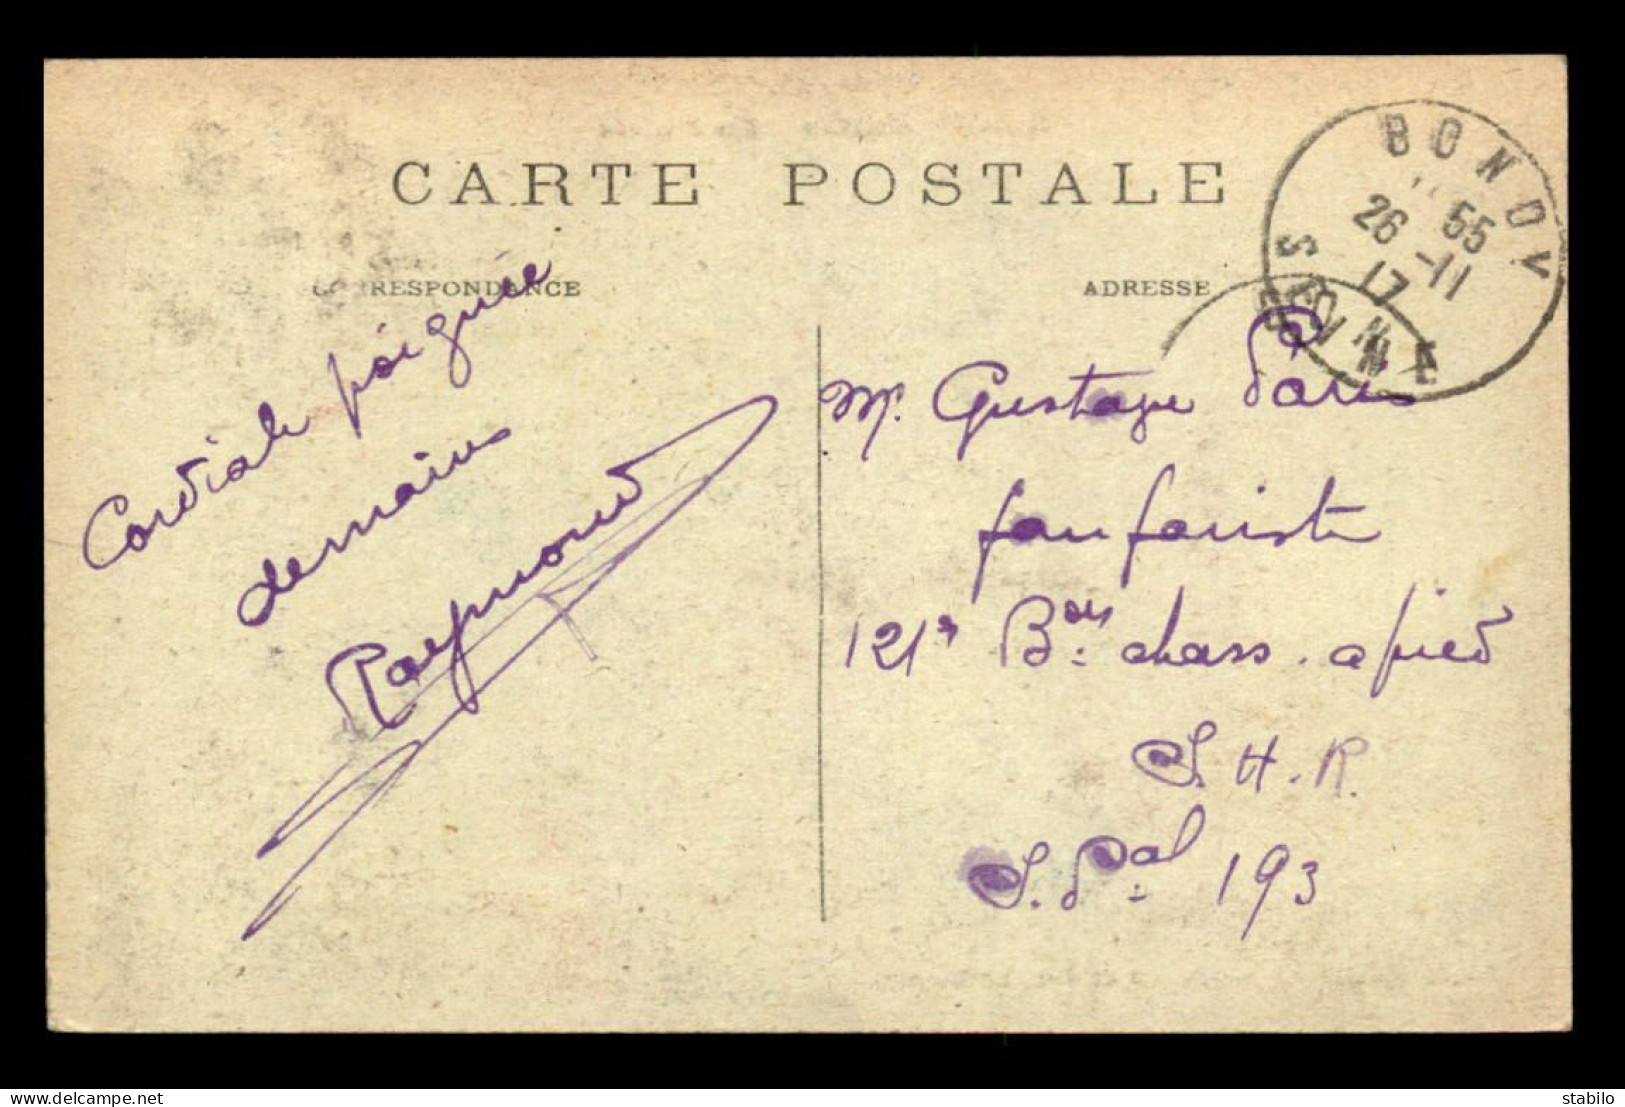 CARTE POSTALE
CORRESPONDANCE
ADRESSE
BONDY
55
26 -11
17
SEINE
Cordiale poignée
de mains
Raymond
M. Gustave Paris
fanfariste
121e Bon chass. a pied
S. H. R.
S. Pal 193
delcampe.net
stabilo